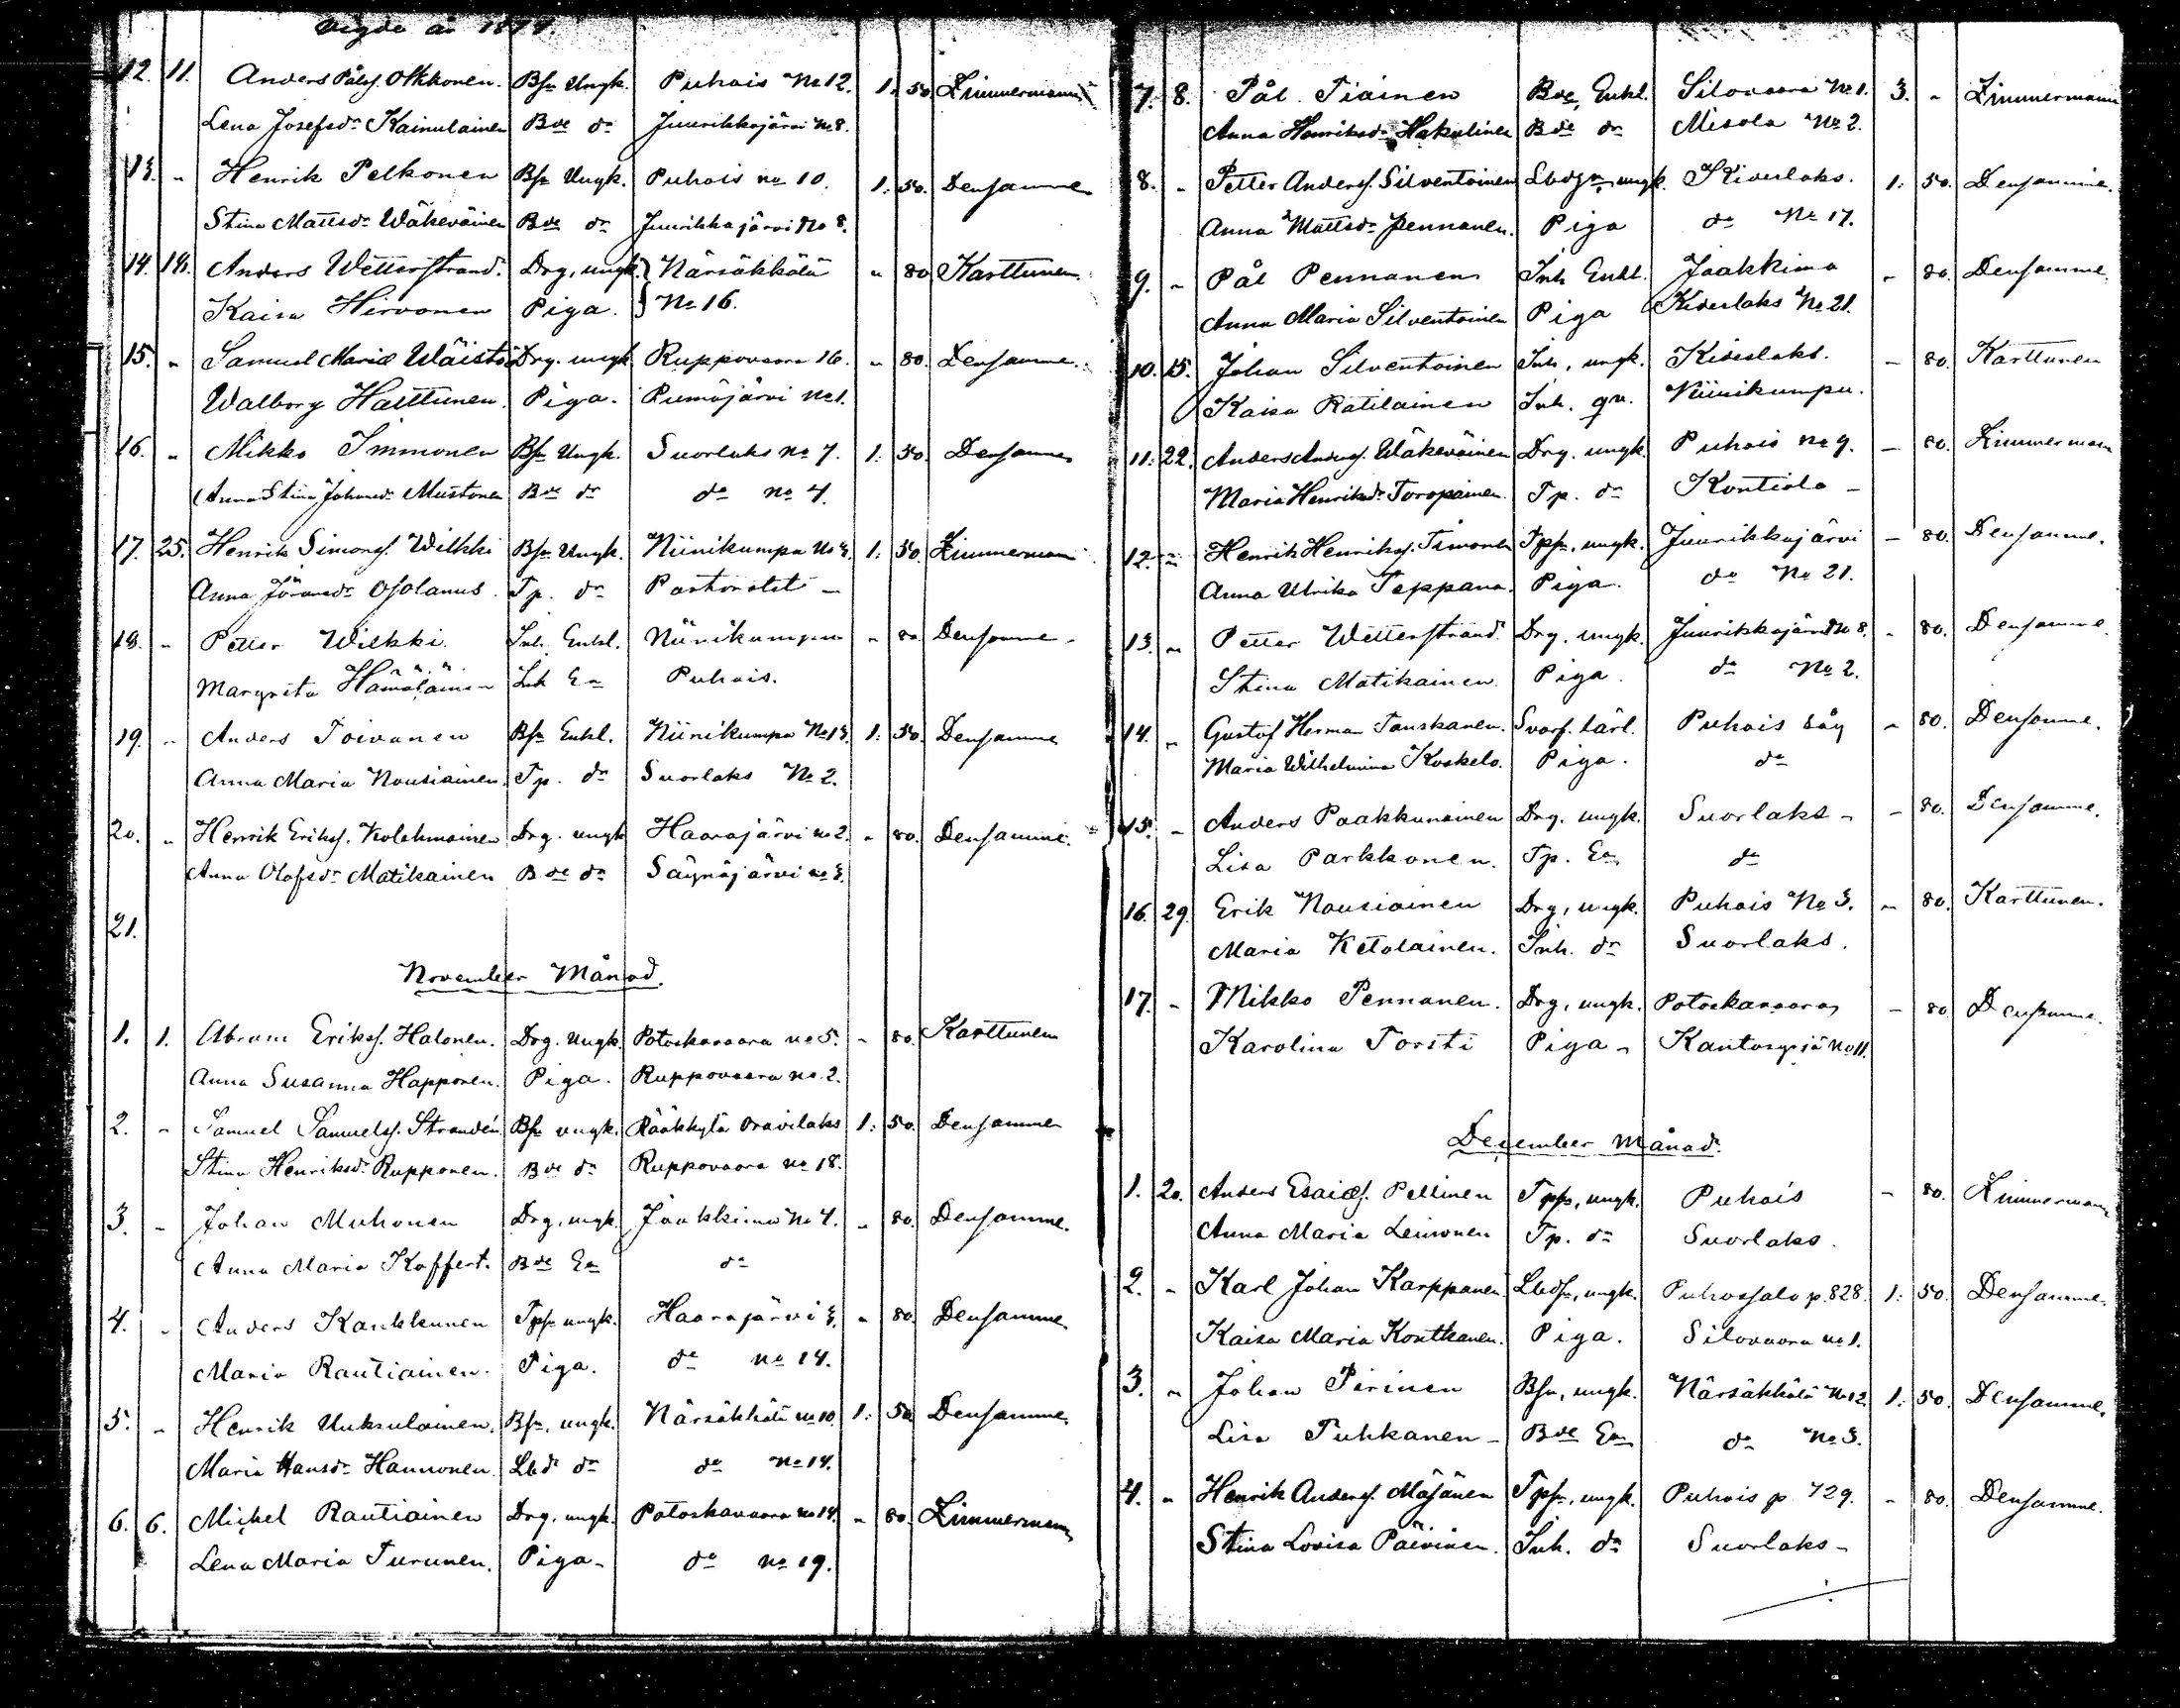 Vigde år 1874.
12. 11. Anders Pålss. Okkonen. Bsn Ungk. Puhois No 12. 1. 50. Zimmermann
Lena Josefsdr Kainulainen Bde dr Juurikkajärvi No 8.
13. " Henrik Pelkonen Bsn Ungk. Puhois no 10. 1. 50. Densamme
Stina Mattsdr Wäkeväinen Bde dr Juurikkajärvi No 8.
14. 18. Anders Wetterstrand. Drg, ungk. Närsäkkälä " 80 Karttunen
Kaisa Hirvonen Piga. No 16.
15. " Samuel Wäistö Drg. ungk Ruppovaara 16. " 80. Densamme.
Walborg Harttunen. Piga. No 1.
16. " Mikko Immonen Bsn Ungk. Suorlaks no 7. 1. 50. Densamme
Anna Stina Johansdr Mustonen Bde dr do no 4.
17. 25. Henrik Simonss. Wilkki Bsn Ungk. Niinikumpu No 3. 1. 50. Zimmermann
Anna Göransdr Ojolanus. Tp. dr Pastoratet –
18. " Petter Wilkki. Inh. Enkl. Niinikumpu " 80. Densamme
Margreta Hämäläinen Inh En Puhois.
19. " Anders Toivanen Bsn Enkl. Niinikumpu No 13. 1. 50. Densamme
Anna Maria Nousiainen. Tp. dr Suorlaks No 2.
20. " Henrik Erikss. Kolehmainen Drg. ungk Haarajärvi no 2. " 80. Densamme.
Anna Olofsdr Matikainen Bde dr Säynäjärvi no 3.
21.
November Månad.
1. 1. Abram Erikss. Halonen. Drg. Ungk. Potoskavaara no 5. – 80. Karttunen
Anna Susanna Happonen. Piga. Ruppovaara no 2.
2. " Samuel Samuelss. Strandén Bsn ungk. Rääkkylä Oravilaks 1. 50. Densamme
Stina Henriksdr Rupponen. Bde dr Ruppovaara no 18.
3. " Johan Muhonen Drg, ungk. Jaakkima No 4. " 80. Densamme.
Anna Maria Koffert. Bde En do
4. " Anders Kankkunen Tpsn ungk. Haarajärvi 3. " 80. Densamme.
Maria Rautiainen. Piga. do no 14.
5. " Henrik Uuksulainen. Bsn, ungk. Närsäkkälä no 10. 1. 50. Densamme.
Maria Hansdr Hannonen. Lbdr dr do No 14.
6. 6. Michel Rautiainen Drg, ungk. Potoskavaara no 14. " 80. Zimmermann
Lena Maria Turunen. Piga – do no 19.
7. 8. Pål Tiainen Bde, Enkl. Silovaara No 1. 3. " Zimmermann
Anna Henriksdr Hakulinen Bde dr Misola No 2.
8. " Petter Anderss. Silventoinen Lbdgn, ungk. Kiveslaks. 1. 50. Densamme.
Anna Mattsdr Pennanen. Piga do No 17.
9. " Pål Pennanen Inh Enkl. Jaakkima " 80. Densamme.
Anna Maria Silventoinen Piga Kiveslaks No 21.
10. 15. Johan Silventoinen Inh, ungk. Kiveslaks. – 80. Karttunen
Kaisa Ratilainen Inh. qv. Niinikumpu.
11. 22. Anders Anderss. Wäkeväinen Drg. ungk. Puhois no 9. – 80. Zimmermann
Maria Henriksdr Toropainen. Tp. dr Kontiola –
12. " Henrik Henrikss. Timonen Tpsn, ungk. Juurikkajärvi – 80. Densamme.
Anna Ulrika Teppana. Piga. do No 21.
13. " Petter Wetterstrand. Drg, ungk. Juurikkajärvi No 8. " 80. Densamme.
Stina Matikainen. Piga. do No 2.
14. " Gustaf Herman Tanskanen. Svarf. lärl. Puhois såg " 80. Densamme.
Maria Wilhelmina Koskelo. Piga. do
15. " Anders Paakkunainen Drg. ungk. Suorlaks – – 80. Densamme.
Lisa Parkkonen. Tp. En do
16. 29. Erik Nousiainen Drg, ungk. Puhois No 3. " 80. Karttunen.
Maria Ketolainen. Inh. dr Suorlaks.
17. " Mikko Pennanen. Drg, ungk. Potoskavaara – 80. Densamme.
Karolina Torsti Piga – Kantosyrjä No 11.
December Månad.
1. 20. Anders Esaiess. Pellinen Tpsn, ungk. Puhois – 80. Zimmermann
Anna Maria Leinonen Tp. dr Suorlaks.
2. " Karl Johan Karppanen Lbdsn, ungk. Puhossalo p. 828. 1. 50. Densamme.
Kaisa Maria Kontkanen. Piga. Silovaara no 1.
3. " Johan Pirinen Bsn, ungk. Närsäkkälä No 12. 1. 50. Densamme.
Lisa Puhkanen – Bde En do No 3.
4. " Henrik Anderss. Mäjänen Tpsn, ungk. Puhois p. 729. " 80. Densamme.
Stina Lovisa Päivinen. Inh. dr Suorlaks –